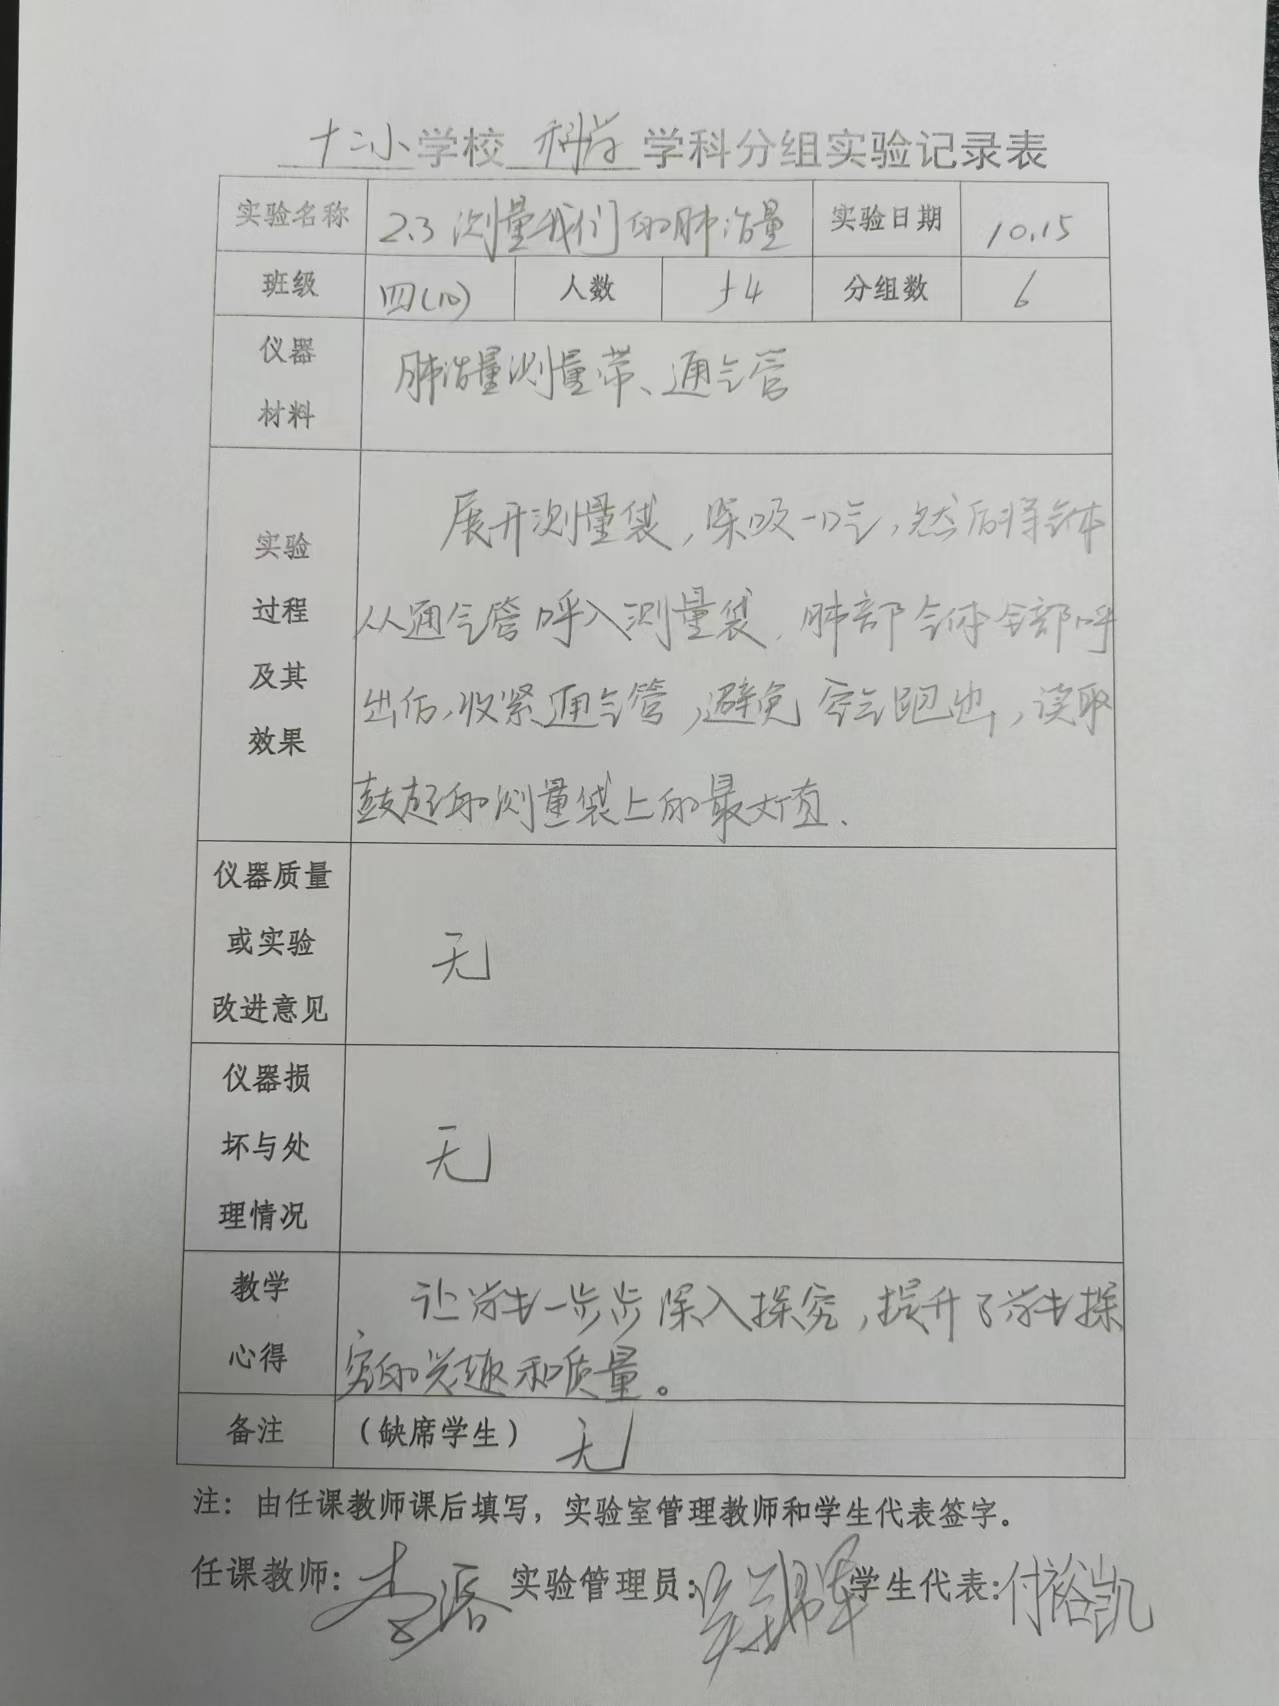 十二小学校 科学 学科分组实验记录表
实验名称 2.3 测量我们的肺活量 实验日期 10.15
班级 四(10) 人数 54 分组数 6
仪器
材料
肺活量测量带、通气管
实验
过程
及其
效果
展开测量袋,深吸一口气,然后将气体
从通气管呼入测量袋.肺部气体全部呼
出后,收紧通气管,避免空气跑出,读取
鼓起的测量袋上的最大值.
仪器质量
或实验
改进意见
无
仪器损
坏与处
理情况
无
教学
心得
让学生一步步深入探究,提升了学生探
究的兴趣和质量。
备注 (缺席学生) 无
注:由任课教师课后填写,实验室管理教师和学生代表签字。
任课教师: 李 实验管理员: 学生代表:付裕凯